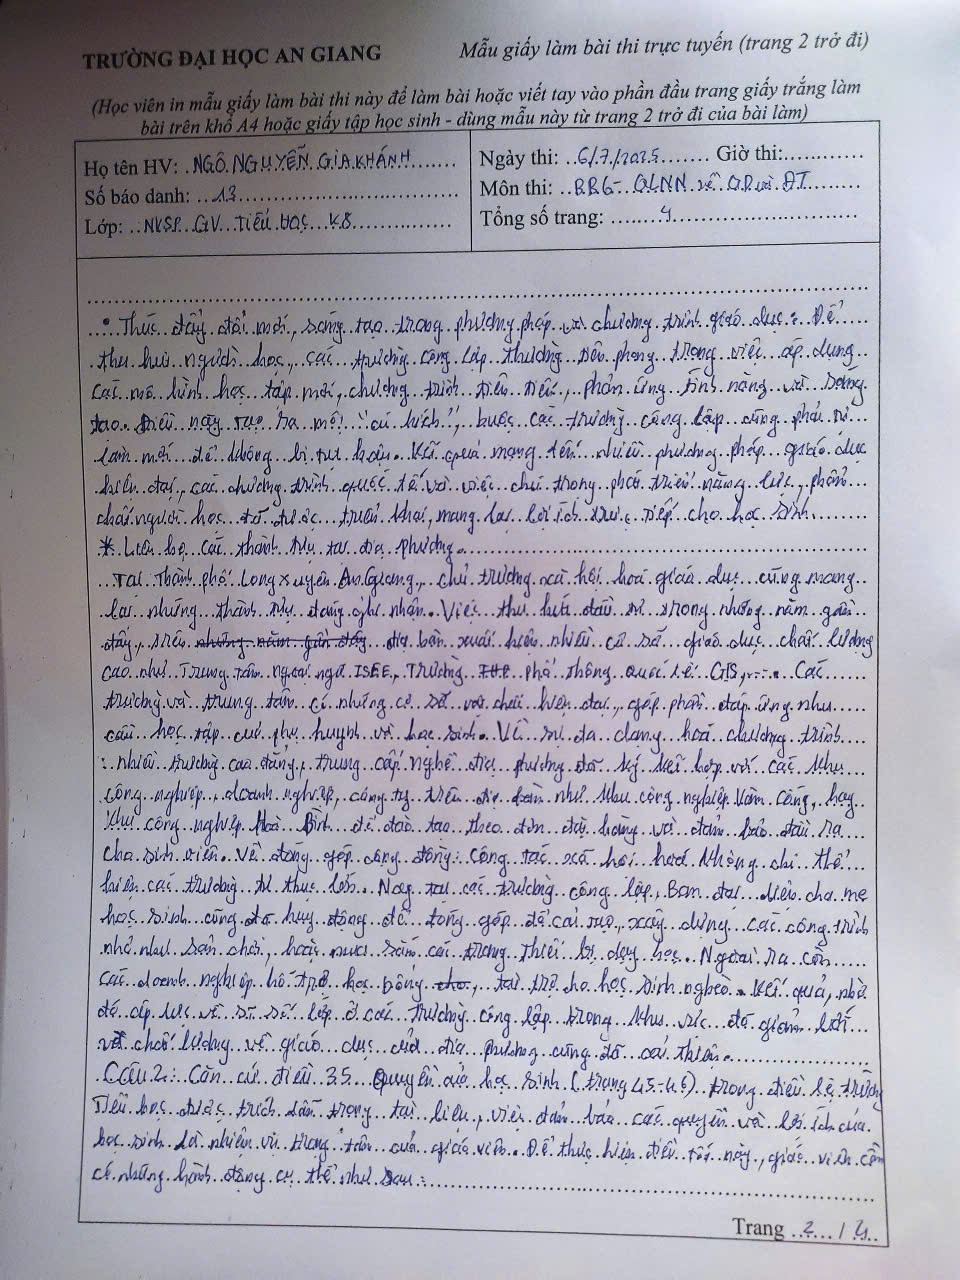 TRƯỜNG ĐẠI HỌC AN GIANG
Mẫu giấy làm bài thi trực tuyến (trang 2 trở đi)
(Học viên in mẫu giấy làm bài thi này để làm bài hoặc viết tay vào phần đầu trang giấy trắng làm
bài trên khổ A4 hoặc giấy tập học sinh - dùng mẫu này từ trang 2 trở đi của bài làm)
Họ tên HV: NGÔ NGUYỄN GIA KHÁNH
Số báo danh: 13
Lớp: NVSP GV Tiểu học K8
Ngày thi: 6/7/2025 Giờ thi:
Môn thi: QLNN về GD và ĐT
Tổng số trang: 4
• Thúc đẩy đổi mới, sáng tạo trong phương pháp và chương trình giáo dục: Để
thu hút người học, các trường công lập thường tiên phong trong việc áp dụng
các mô hình học tập mới, chương trình tiên tiến, phản ứng tính năng và sáng
tạo. Điều này tạo ra một "cú hích", buộc các trường công lập cũng phải tự
làm mới để không bị tụt hậu. Kết quả mang đến nhiều phương pháp giáo dục
hiện đại, các chương trình quốc tế và việc chú trọng phát triển năng lực, phẩm
chất người học đã được triển khai, mang lại lợi ích trực tiếp cho học sinh.
* Liên hệ các thành tựu tại địa phương.
Tại Thành phố Long Xuyên An Giang, chủ trương xã hội hoá giáo dục cũng mang
lại những thành tựu đáng ghi nhận. Việc thu hút đầu tư trong những năm gần
đây, trên những năm gần đây địa bàn xuất hiện nhiều cơ sở giáo dục chất lượng
cao như Trung tâm ngoại ngữ ISEE, Trường phổ thông Quốc tế GIS,... Các
trường và trung tâm có những cơ sở vật chất hiện đại, góp phần đáp ứng nhu
cầu học tập của phụ huynh và học sinh. Về sự đa dạng hoá chương trình
: nhiều trường cao đẳng, trung cấp nghề địa phương đã ký kết hợp với các khu
công nghiệp, doanh nghiệp, công ty trên địa bàn như khu công nghiệp Vàm Cống, hay
khu công nghiệp Hoà Bình để đào tạo theo đơn đặt hàng và đảm bảo đầu ra
cho sinh viên. Về đóng góp cộng đồng: Công tác xã hội hoá không chỉ thể
hiện các trường tư thục lớn. Ngay tại các trường công lập, Ban đại diện cha mẹ
học sinh cũng đã huy động để đóng góp để cải tạo, xây dựng các công trình
nhỏ như sân chơi, hoặc mua sắm các trang thiết bị dạy học. Ngoài ra còn
các doanh nghiệp hỗ trợ học bổng cho, tài trợ cho học sinh nghèo. Kết quả, nhờ
đó áp lực về sĩ số lớp ở các trường công lập trong khu vực đã giảm bớt
và chất lượng về giáo dục của địa phương cũng đã cải thiện.
Câu 2: Căn cứ điều 35 Quyền của học sinh (trang 45-46) trong điều lệ trường
Tiểu học được trích dẫn trong tài liệu, việc đảm bảo các quyền và lợi ích của
học sinh là nhiệm vụ trọng tâm của giáo viên. Để thực hiện điều tốt này, giáo viên cần
có những hành động cụ thể như sau:
Trang 2 / 4